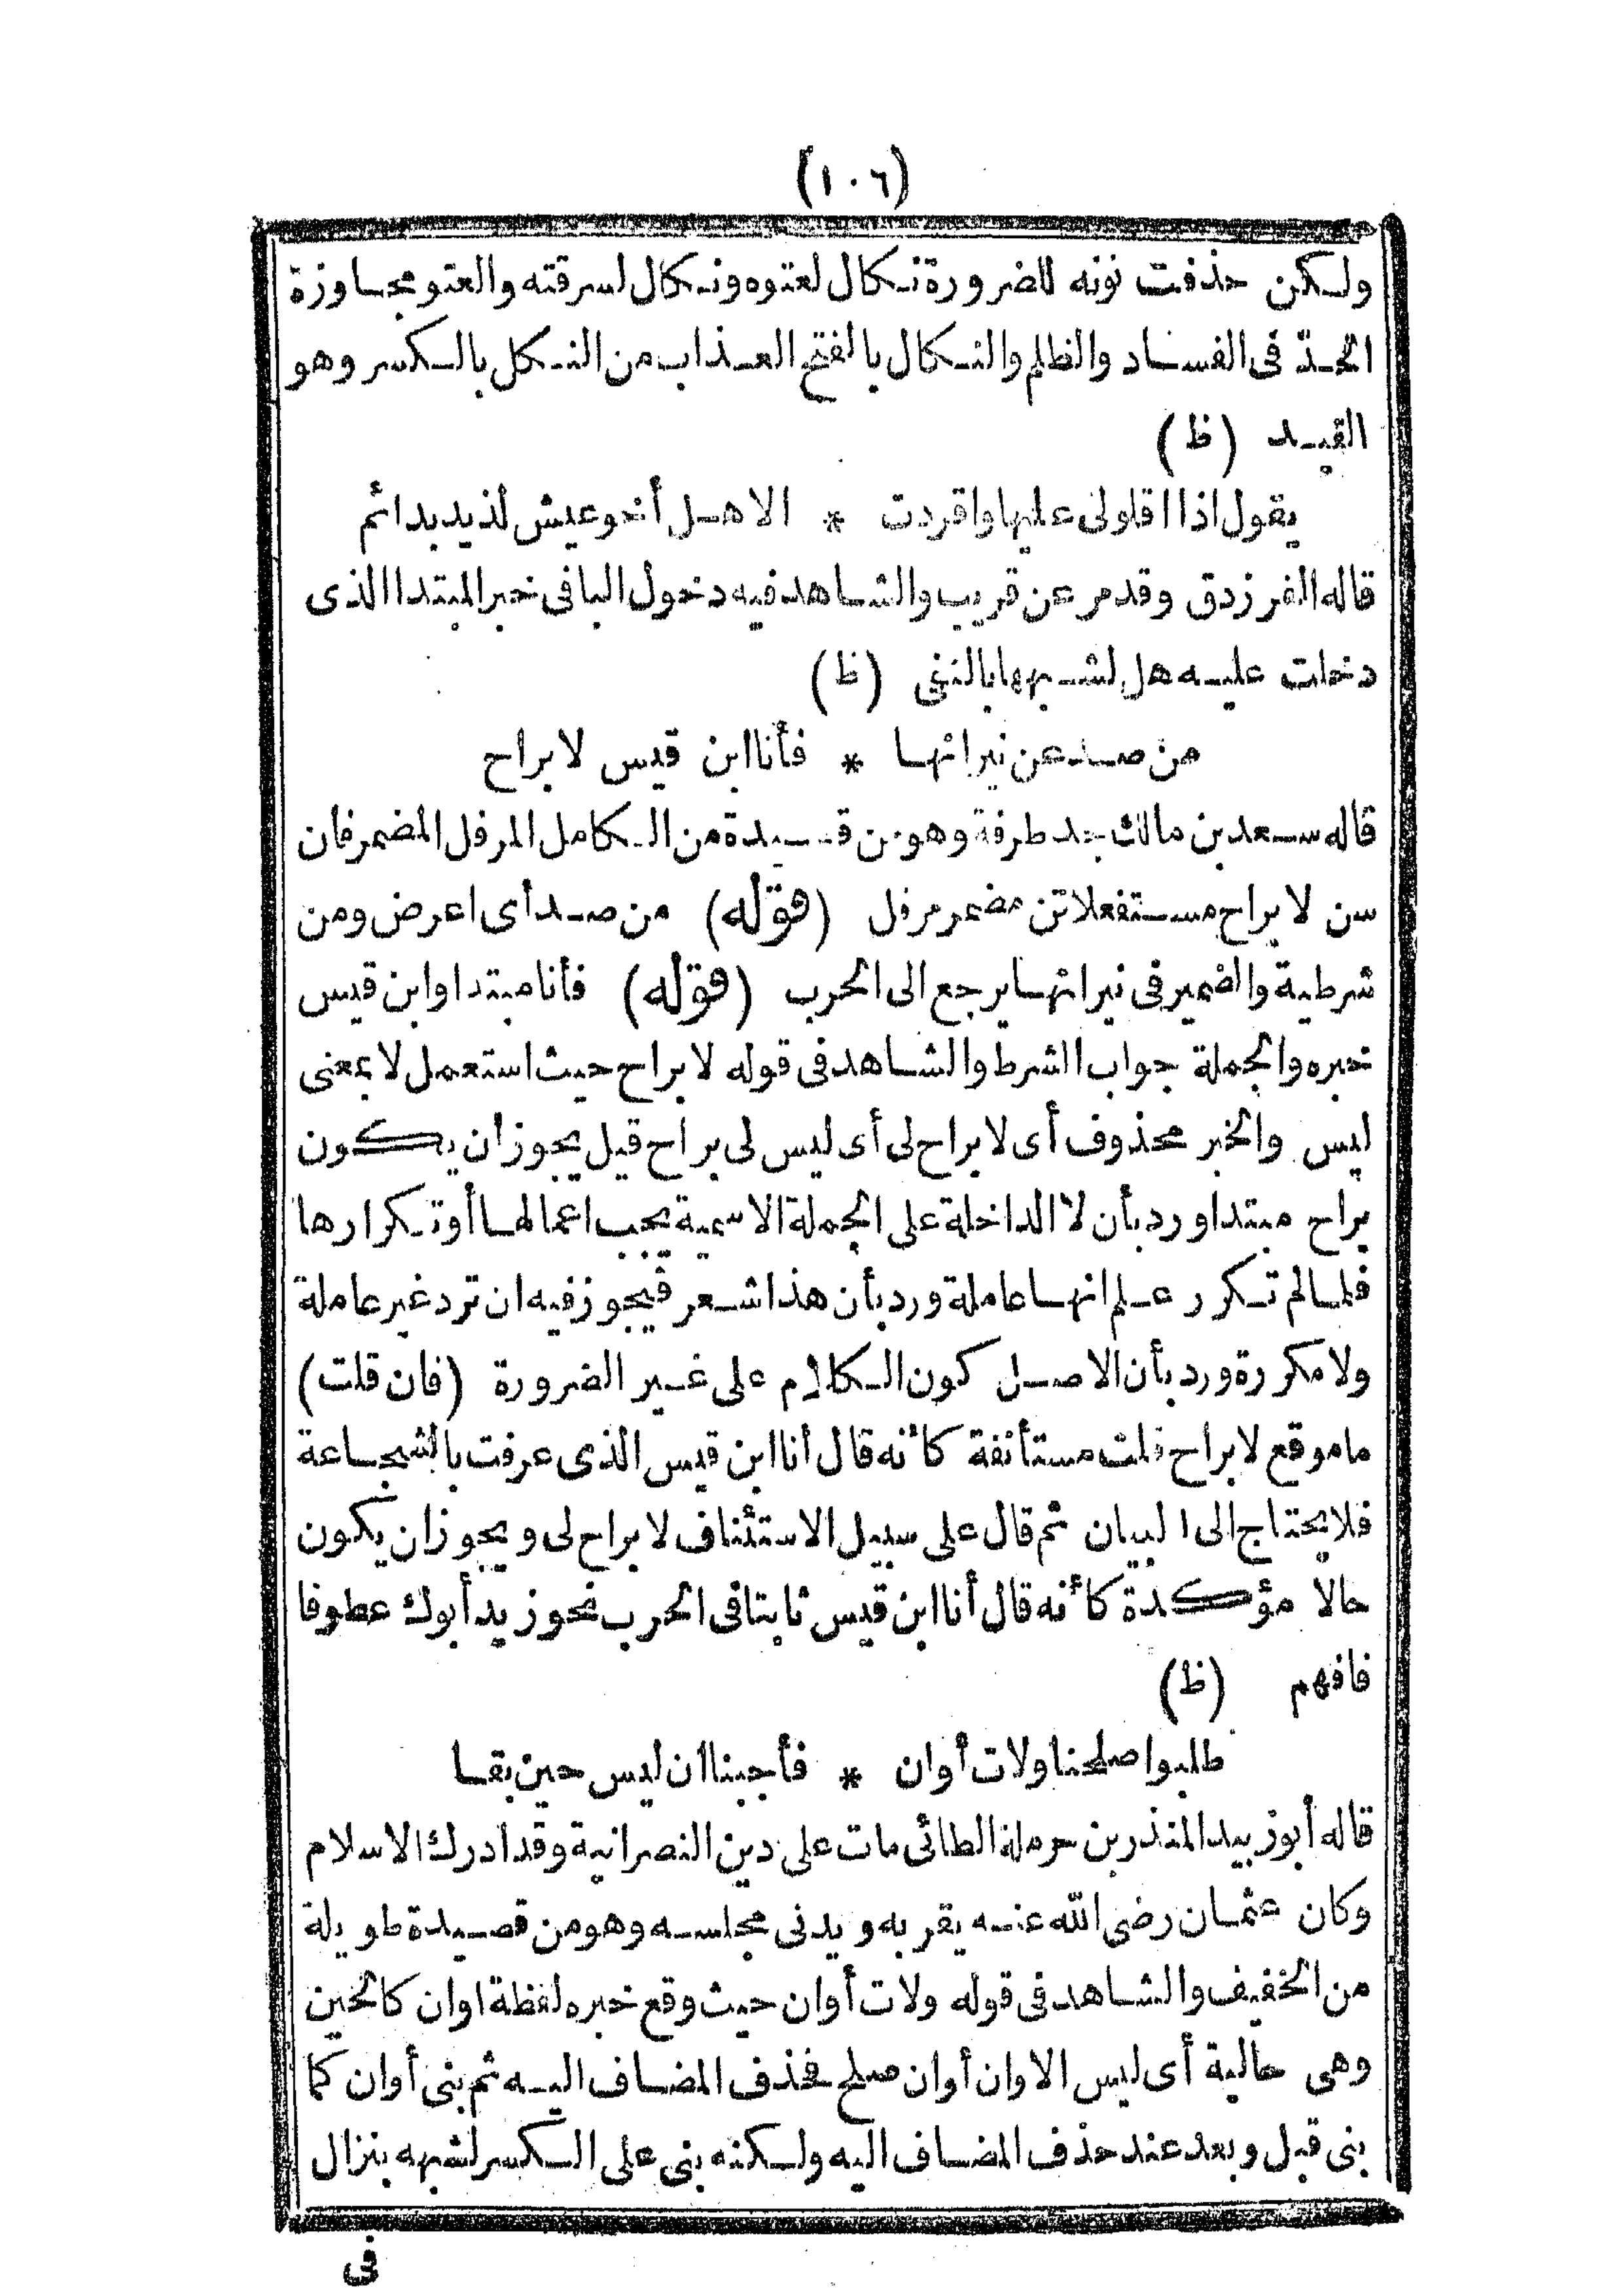 (١٠٦)
ولكن حذفت نونه للضرورة نكال لعتوه ونكال لسرقته والعتو مجاوزة
الحد فى الفساد والظلم والنكال بالفتح العذاب من النكل بالكسر وهو
القيد (ظ)
يقول اذا اقلولى عليها واقردت * الا هل أخو عيش لذيذ بدائم
قاله الفرزدق وقد مر عن قريب والشاهد فيه دخول البا فى خبر المبتدا الذى
دخلت عليه هل لشبهها بالنفى (ظ)
من صد عن نيرانها * فأنا ابن قيس لا براح
قاله سعد بن مالك جد طرفة وهو من قصيدة من الكامل المرفل المضمر فان
سن لا براح مستفعلاتن مضمر مرفل (قوله) من صد أى اعرض ومن
شرطية والضمير فى نيرانها يرجع الى الحرب (قوله) فأنا مبتدا وابن قيس
خبره والجملة جواب الشرط والشاهد فى قوله لا براح حيث استعمل لا بمعنى
ليس والخبر محذوف أى لا براح لى أى ليس لى براح قيل يجوز ان يكون
براح مبتدا ورد بأن لا الداخلة على الجملة الاسمية يجب اعمالها أو تكرارها
فلما لم تكرر علم انها عاملة ورد بأن هذا شعر فيجوز فيه ان ترد غير عاملة
ولا مكررة ورد بأن الاصل كون الكلام على غير الضرورة (فان قلت)
ما موقع لا براح قلت مستأنفة كأنه قال أنا ابن قيس الذى عرفت بالشجاعة
فلا يحتاج الى البيان ثم قال على سبيل الاستئناف لا براح لى ويجوز ان يكون
حالا مؤكدة كأنه قال أنا ابن قيس ثابتا فى الحرب نحو زيد أبوك عطوفا
فافهم (ظ)
طلبوا صلحنا ولات أوان * فأجبنا ان ليس حين بقا
قاله أبو زبيد المنذر بن حرملة الطائى مات على دين النصرانية وقد أدرك الاسلام
وكان عثمان رضى الله عنه يقربه ويدنى مجلسه وهو من قصيدة طويلة
من الخفيف والشاهد فى قوله ولات أوان حيث وقع خبره لفظة اوان كالحين
وهى حالية أى ليس الاوان أوان صلح فحذف المضاف اليه ثم بنى أوان كما
بنى قبل وبعد عند حذف المضاف اليه ولكنه بنى على الكسر لشبهه بنزال
فى